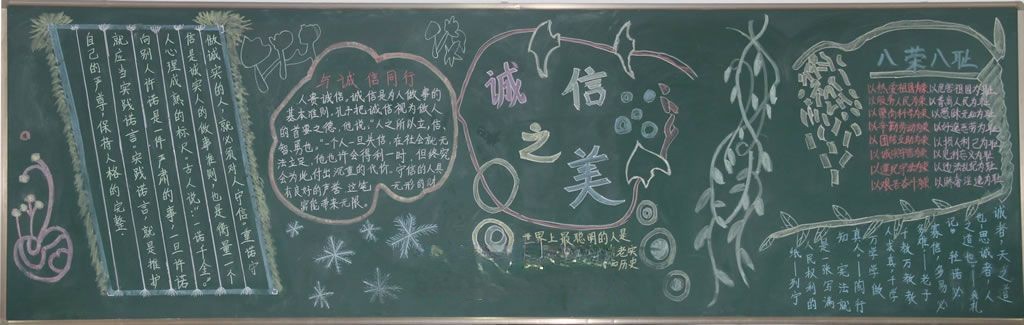 做诚实的人，就必须对人守信，重诺守
信是诚实人的做事准则，也是衡量一个
人心理成熟的标尺。古人说：“一诺千金。”
向别人许诺是一件严肃的事，一旦许诺
就应当实践诺言，实践诺言，就是维护
自己的尊严，保持人格的完整。
与诚信同行
人贵诚信，诚信是为人做事的
基本准则，孔子把诚信视为做人
的首要之德，他说，“人之所以立，信、
智、勇也。”个人一旦失信，在社会就无
法立足，他也许会得利一时，但终究
会为此付出沉重的代价。守信的人具
有良好的声誉，这能 无形的
诚信之美
世界上最聪明的人是
老实
历史
八荣八耻
以热爱祖国为荣 以危害祖国为耻
以服务人民为荣 以背离人民为耻
以崇尚科学为荣 以愚昧无知为耻
以辛勤劳动为荣 以好逸恶劳为耻
以团结互助为荣 以损人利己为耻
以诚实守信为荣 以见利忘义为耻
以遵纪守法为荣 以违法乱纪为耻
以艰苦奋斗为荣 以骄奢淫逸为耻
诚者，天之道
也思诚者，人
之道也
老子
千教万教教
人求真，千学
万学学做
真人
知
宪法就
是一张写满
人民权利的
纸——列宁